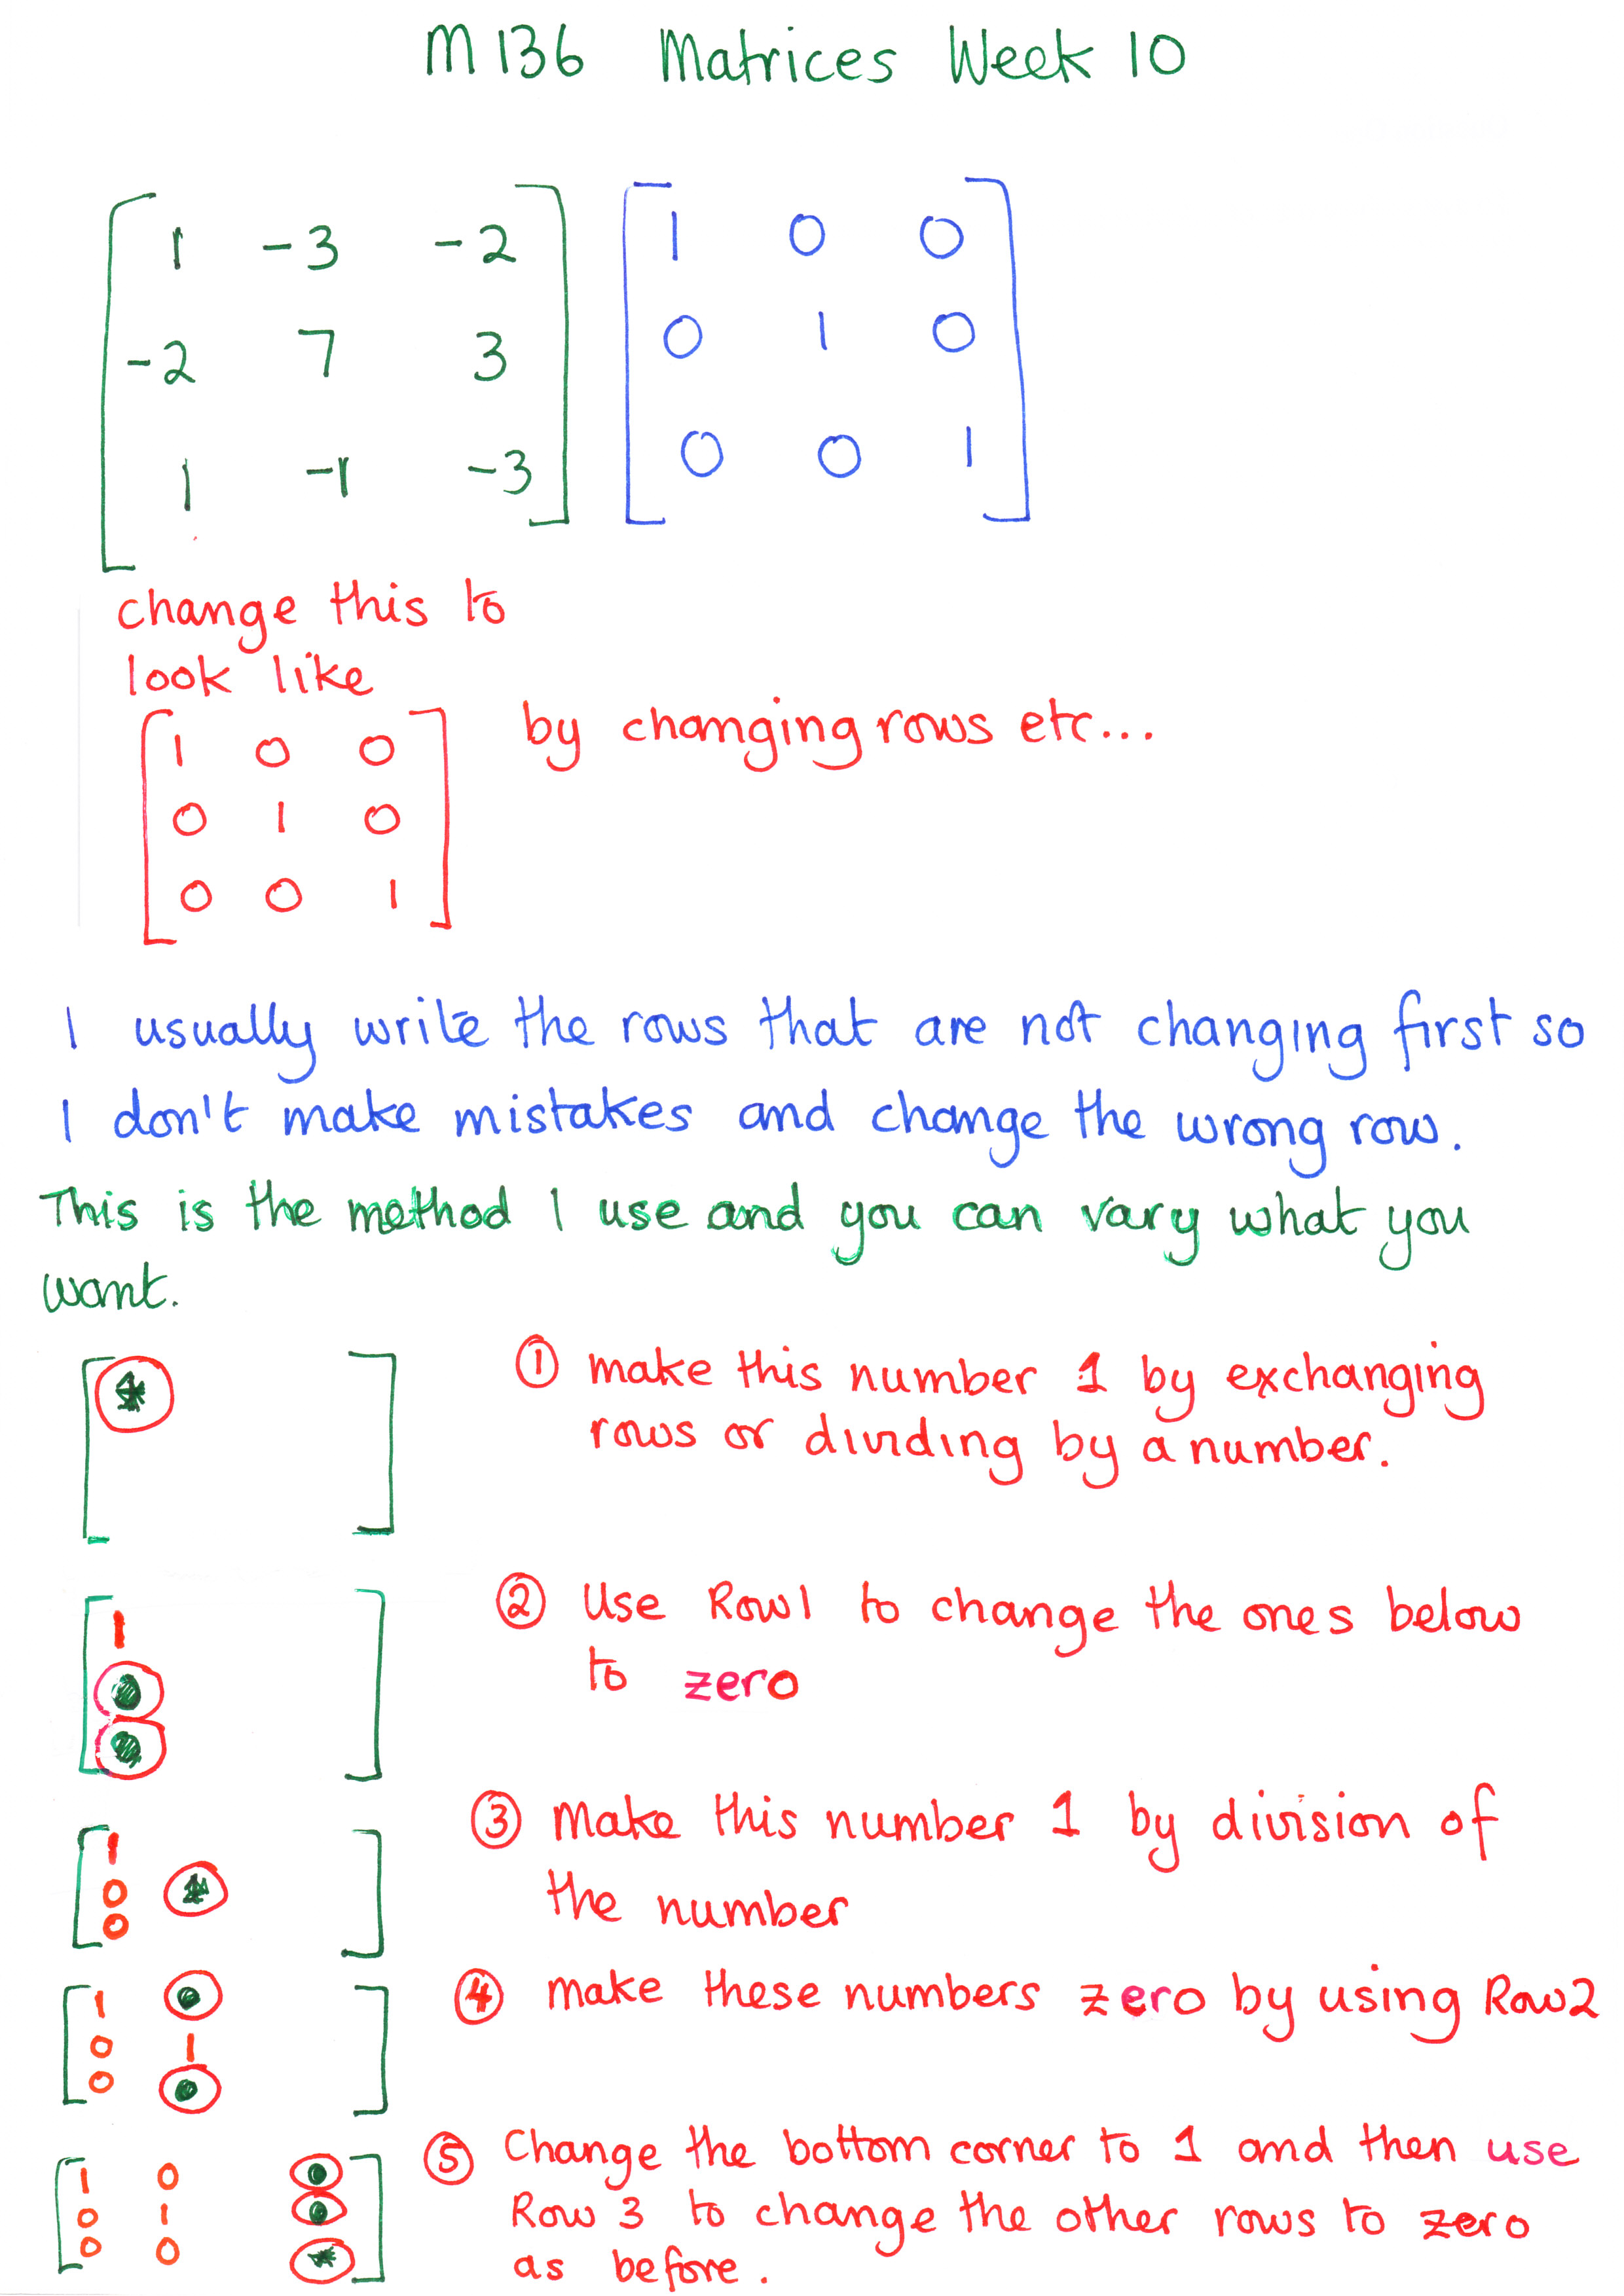 M136 Matrices Week 10
1 -3 -2 1 0 0
-2 7 3 0 1 0
1 -1 -3 0 0 1
change this to
look like
by changing rows etc...
1 0 0
0 1 0
0 0 1
I usually write the rows that are not changing first so
I don't make mistakes and change the wrong row.
This is the method I use and you can vary what you
want.
① make this number 1 by exchanging
rows or dividing by a number.
1
② Use Row1 to change the ones below
to zero
③ Make this number 1 by division of
the number
1
0
0
④ make these numbers zero by using Row2
1
0 1
0
⑤ Change the bottom corner to 1 and then use
Row 3 to change the other rows to zero
as before.
1 0
0 1
0 0